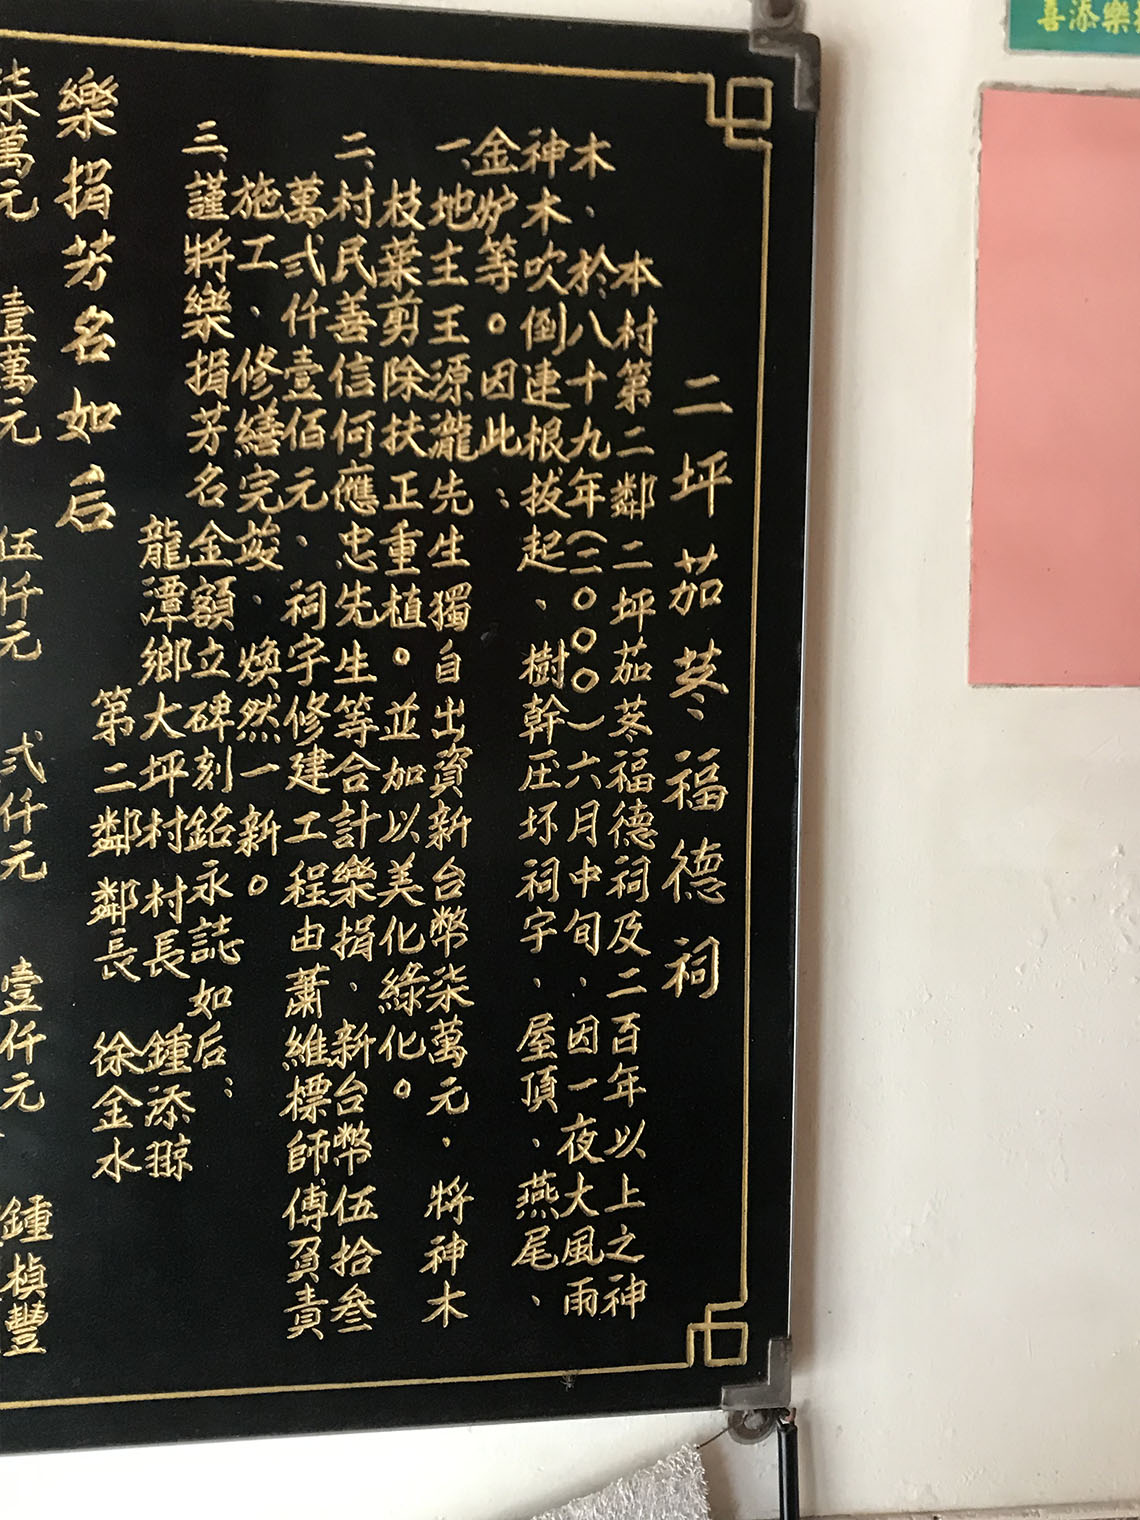 二坪茄苳福德祠
本村第二鄰二坪茄苳福德祠及二百年以上之神
木、於八十九年(二〇〇〇)六月中旬、因一夜大風雨
神木吹倒連根拔起、樹幹压坏祠宇、屋頂、燕尾、
金炉等。因此:
一、地主王源瀧先生獨自出資新台幣柒萬元,將神木
枝葉剪除扶正重植。並加以美化綠化。
二、村民善信何應忠先生等合計樂捐、新台幣伍拾叁
萬弍仟壹佰元、祠宇修建工程由蕭維標師傅負責
施工、修繕完竣、煥然一新。
三、謹將樂捐芳名金額立碑刻銘永誌如后:
龍潭鄉大坪村村長 鍾添
第二鄰鄰長 徐金水
樂捐芳名如后
柒萬元 壹萬元 伍仟元 弍仟元 壹仟元 鍾楨豐
喜添樂